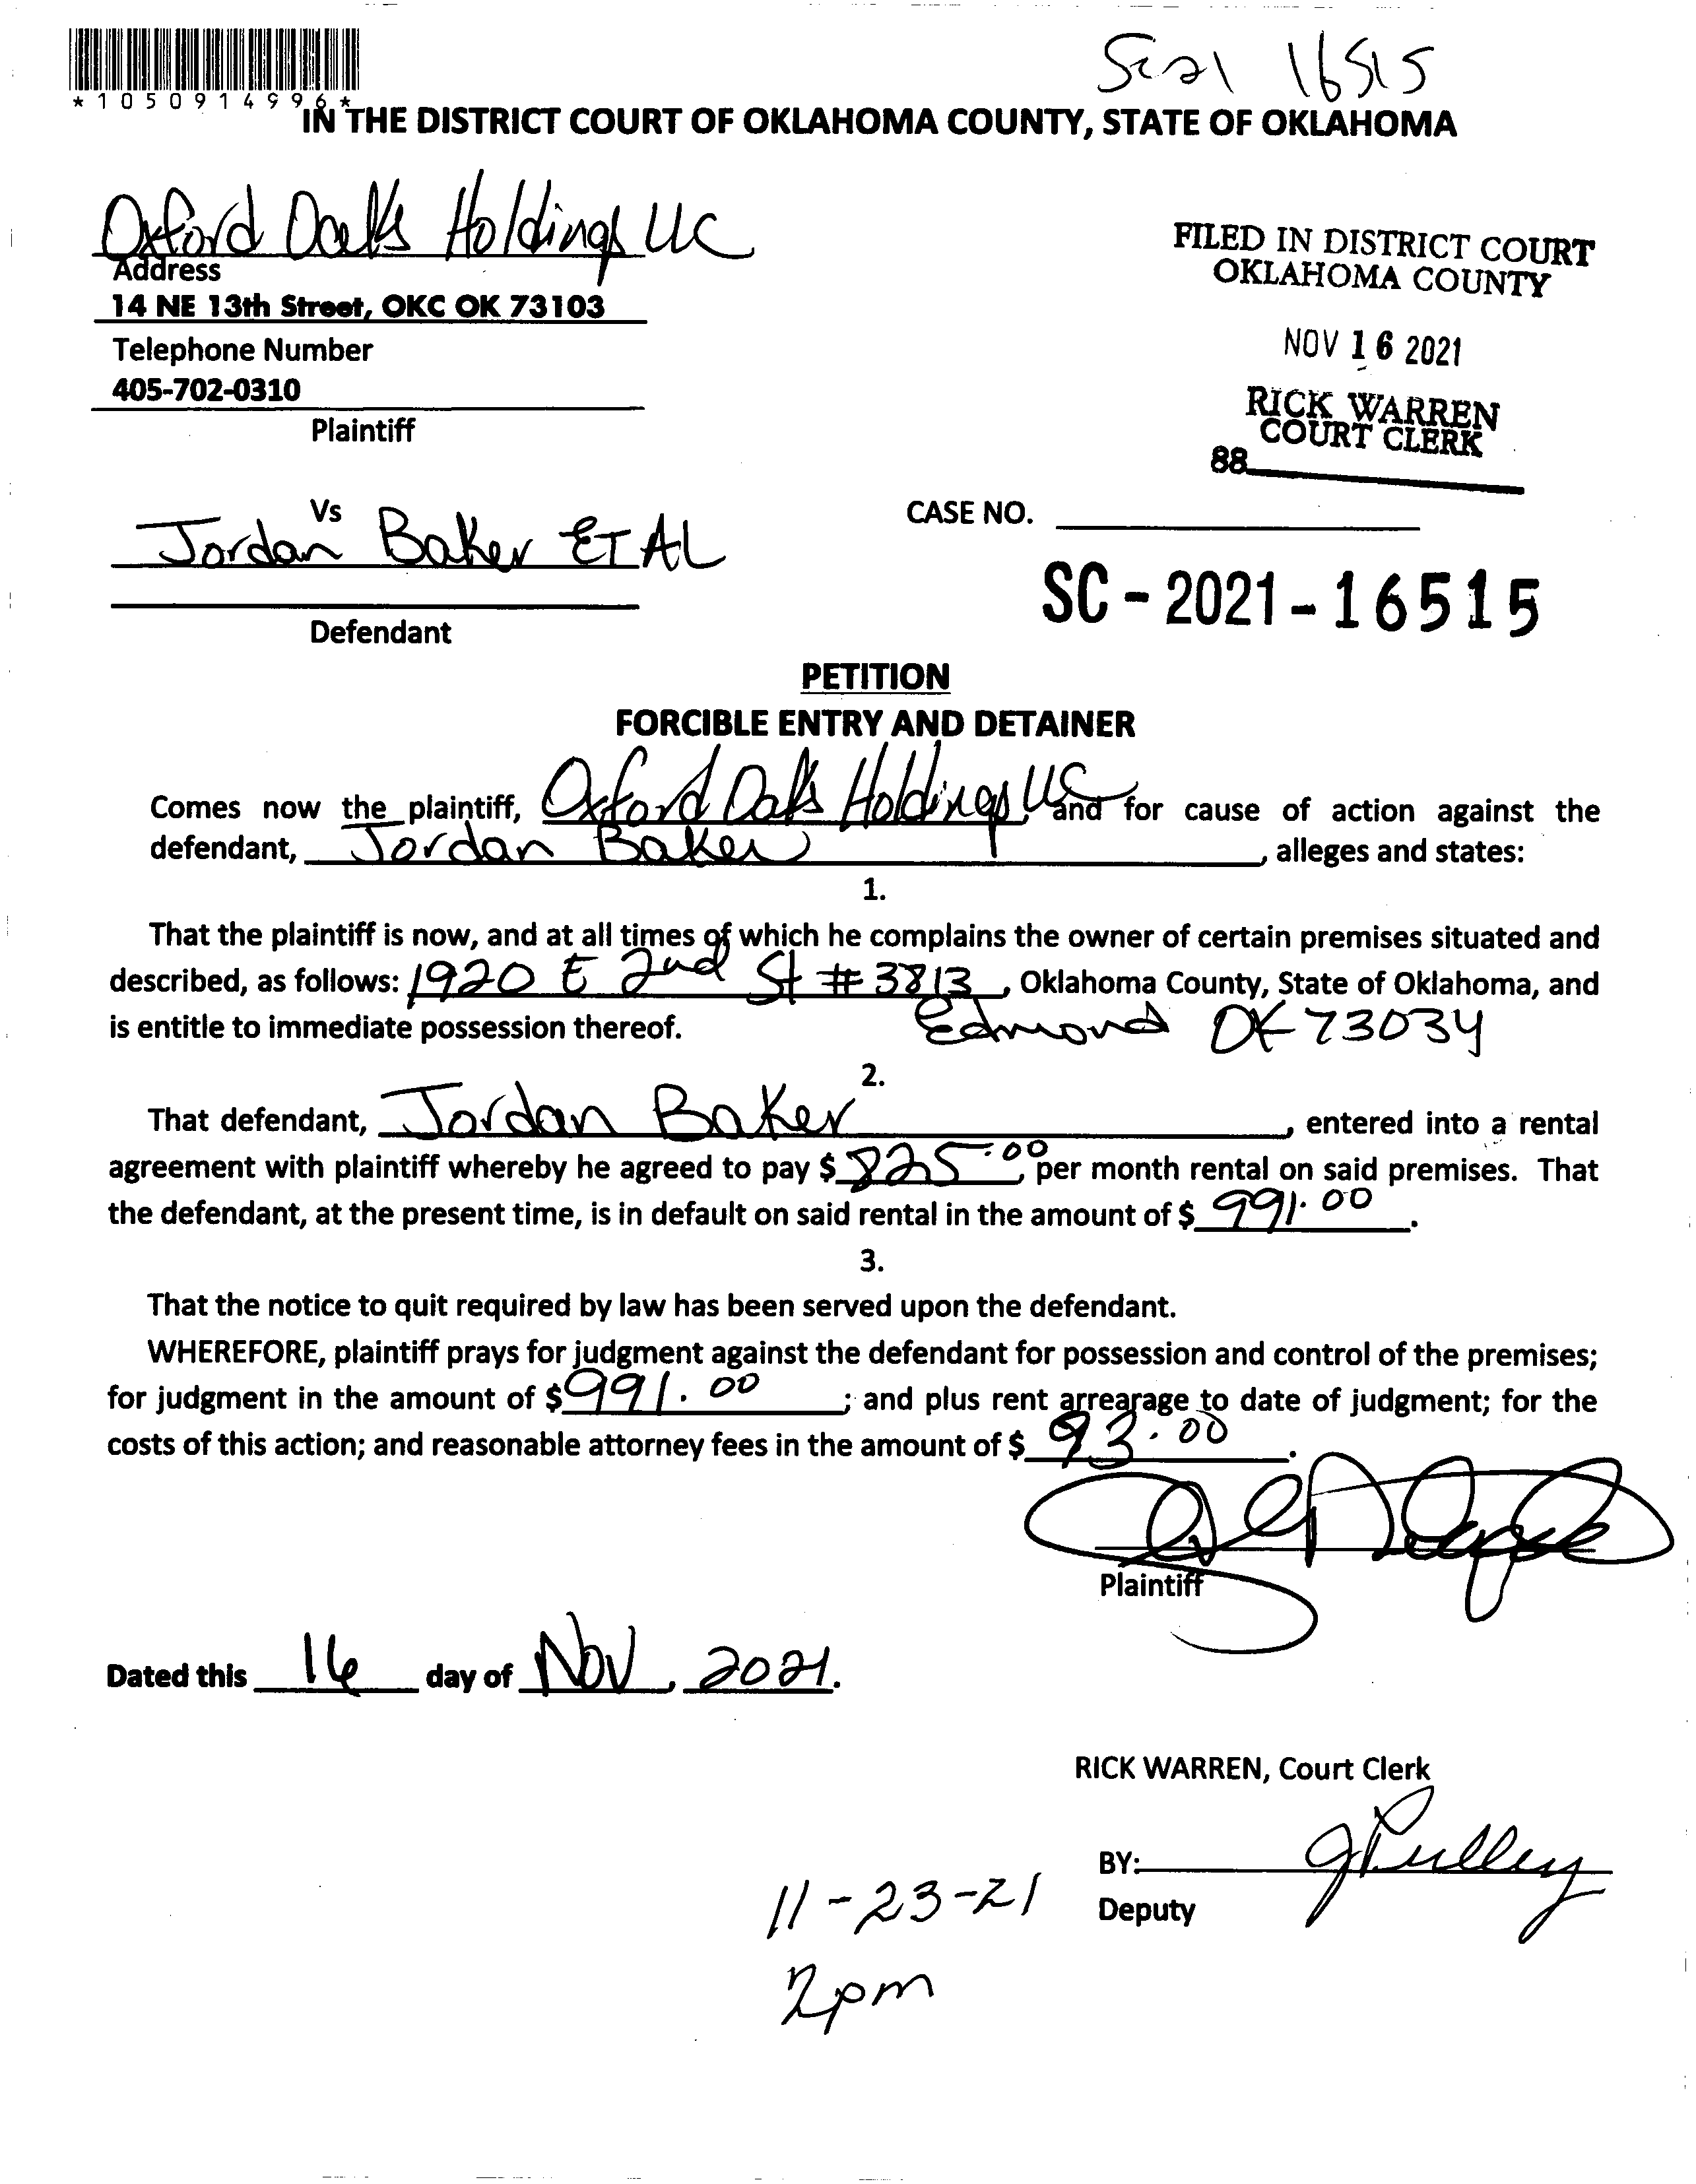 Sc21 16515
*1050914996*
IN THE DISTRICT COURT OF OKLAHOMA COUNTY, STATE OF OKLAHOMA
Oxford Oaks Holdings LLC
Address
14 NE 13th Street, OKC OK 73103
Telephone Number
405-702-0310
Plaintiff
FILED IN DISTRICT COURT
OKLAHOMA COUNTY
NOV 16 2021
RICK WARREN
COURT CLERK
88
Vs
Jordan Baker ET AL
Defendant
CASE NO.
SC-2021-16515
PETITION
FORCIBLE ENTRY AND DETAINER
Comes now the plaintiff, Oxford Oaks Holdings LLC, and for cause of action against the
defendant, Jordan Baker, alleges and states:
1.
That the plaintiff is now, and at all times of which he complains the owner of certain premises situated and
described, as follows: 1920 E 2nd St #3813, Oklahoma County, State of Oklahoma, and
is entitle to immediate possession thereof. Edmond OK 73034
2.
That defendant, Jordan Baker, entered into a rental
agreement with plaintiff whereby he agreed to pay $ 825.00, per month rental on said premises. That
the defendant, at the present time, is in default on said rental in the amount of $ 991.00.
3.
That the notice to quit required by law has been served upon the defendant.
WHEREFORE, plaintiff prays for judgment against the defendant for possession and control of the premises;
for judgment in the amount of $ 991.00; and plus rent arrearage to date of judgment; for the
costs of this action; and reasonable attorney fees in the amount of $ 93.00.
Plaintiff
Dated this 16 day of Nov, 2021.
RICK WARREN, Court Clerk
BY: JPulley
Deputy
11-23-21
2pm